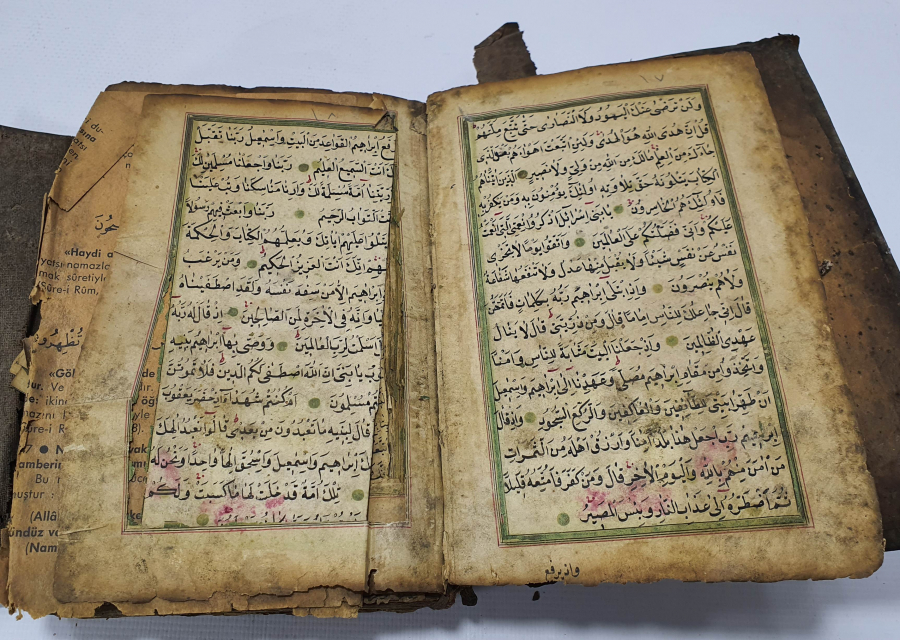 ١٧
ولن ترضى عنك اليهود ولا النصارى حتى تتبع ملتهم
قل ان هدى الله هو الهدى ولئن اتبعت اهواءهم بعد الذى
جاءك من العلم مالك من الله من ولى ولا نصير الذين اتيناهم
الكتاب يتلونه حق تلاوته اولئك يؤمنون به ومن يكفر به
فاولئك هم الخاسرون يا بنى اسرائل اذكروا نعمتى التى انعمت
عليكم وانى فضلتكم على العالمين واتقوا يوما لا تجزى
نفس عن نفس شيئا ولا يقبل منها عدل ولا تنفعها شفاعة
ولا هم ينصرون واذ ابتلى ابراهيم ربه بكلمات فاتمهن
قال انى جاعلك للناس اماما قال ومن ذريتى قال لا ينال
عهدى الظالمين واذ جعلنا البيت مثابة للناس وامنا
واتخذوا من مقام ابراهيم مصلى وعهدنا الى ابراهيم واسمعيل
ان طهرا بيتى للطائفين والعاكفين والركع السجود واذ قال
ابرهيم رب اجعل هذا بلدا امنا وارزق اهله من الثمرات
من امن منهم بالله واليوم الاخر قال ومن كفر فامتعه قليلا
ثم اضطره الى عذاب النار وبئس المصير
واذ يرفع
١٨
ابراهيم القواعد من البيت واسمعيل ربنا تقبل
انت السميع العليم ربنا واجعلنا مسلمين لك
امة مسلمة لك وارنا مناسكنا وتب علينا
انت التواب الرحيم ربنا وابعث فيهم رسولا
يتلوا عليهم اياتك ويعلمهم الكتاب والحكمة
انك انت العزيز الحكيم ومن يرغب
ابراهيم الا من سفه نفسه ولقد اصطفيناه
وانه فى الاخرة لمن الصالحين اذ قال له ربه
اسلمت لرب العالمين ووصى بها ابراهيم بنيه
يا بنى ان الله اصطفى لكم الدين فلا تموتن
مسلمون ام كنتم شهداء اذ حضر يعقوب
قال لبنيه ما تعبدون من بعدى قالوا نعبد الهك
ابراهيم واسمعيل واسحق الها واحدا ونحن له
تلك امة قد خلت لها ما كسبت ولكم
«Haydi
yatsı namazla
mak sûretiyle
Sûre-i Rûm,
«Göl
(Allâ
ündüz ve
(Nam